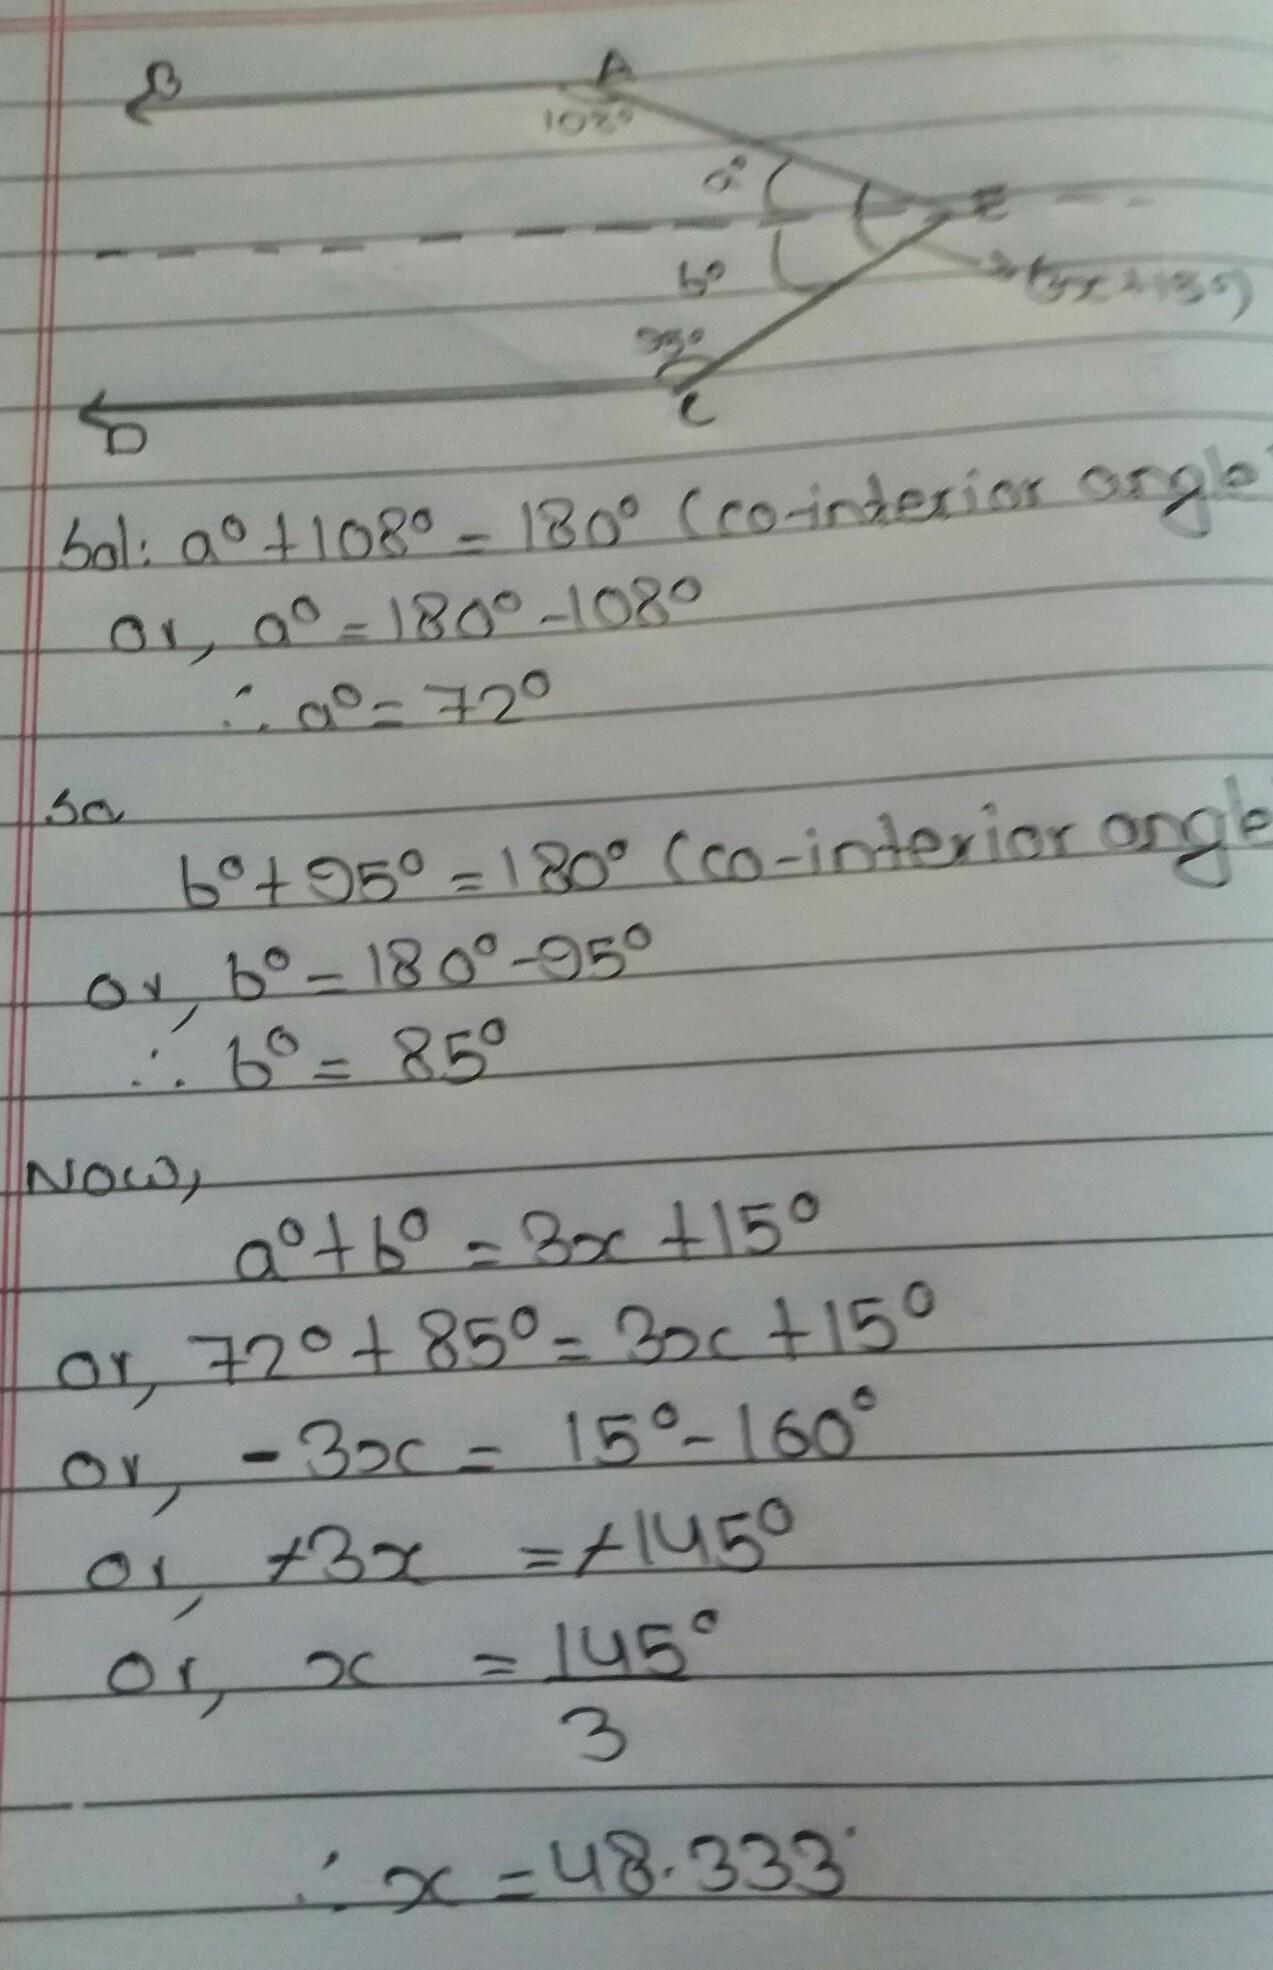 B
A
108°
a°
E
b°
(3x+15°)
95°
C
D
Sol: a°+108° = 180° (co-interior angle
Or, a° = 180°-108°
∴ a° = 72°
So
b°+95° = 180° (co-interior angle
Or, b° = 180°-95°
∴ b° = 85°
Now,
a°+b° = 3x+15°
Or, 72°+85° = 3x+15°
Or, -3x = 15°-160°
Or, +3x = +145°
Or, x = 145°
3
∴ x = 48.333